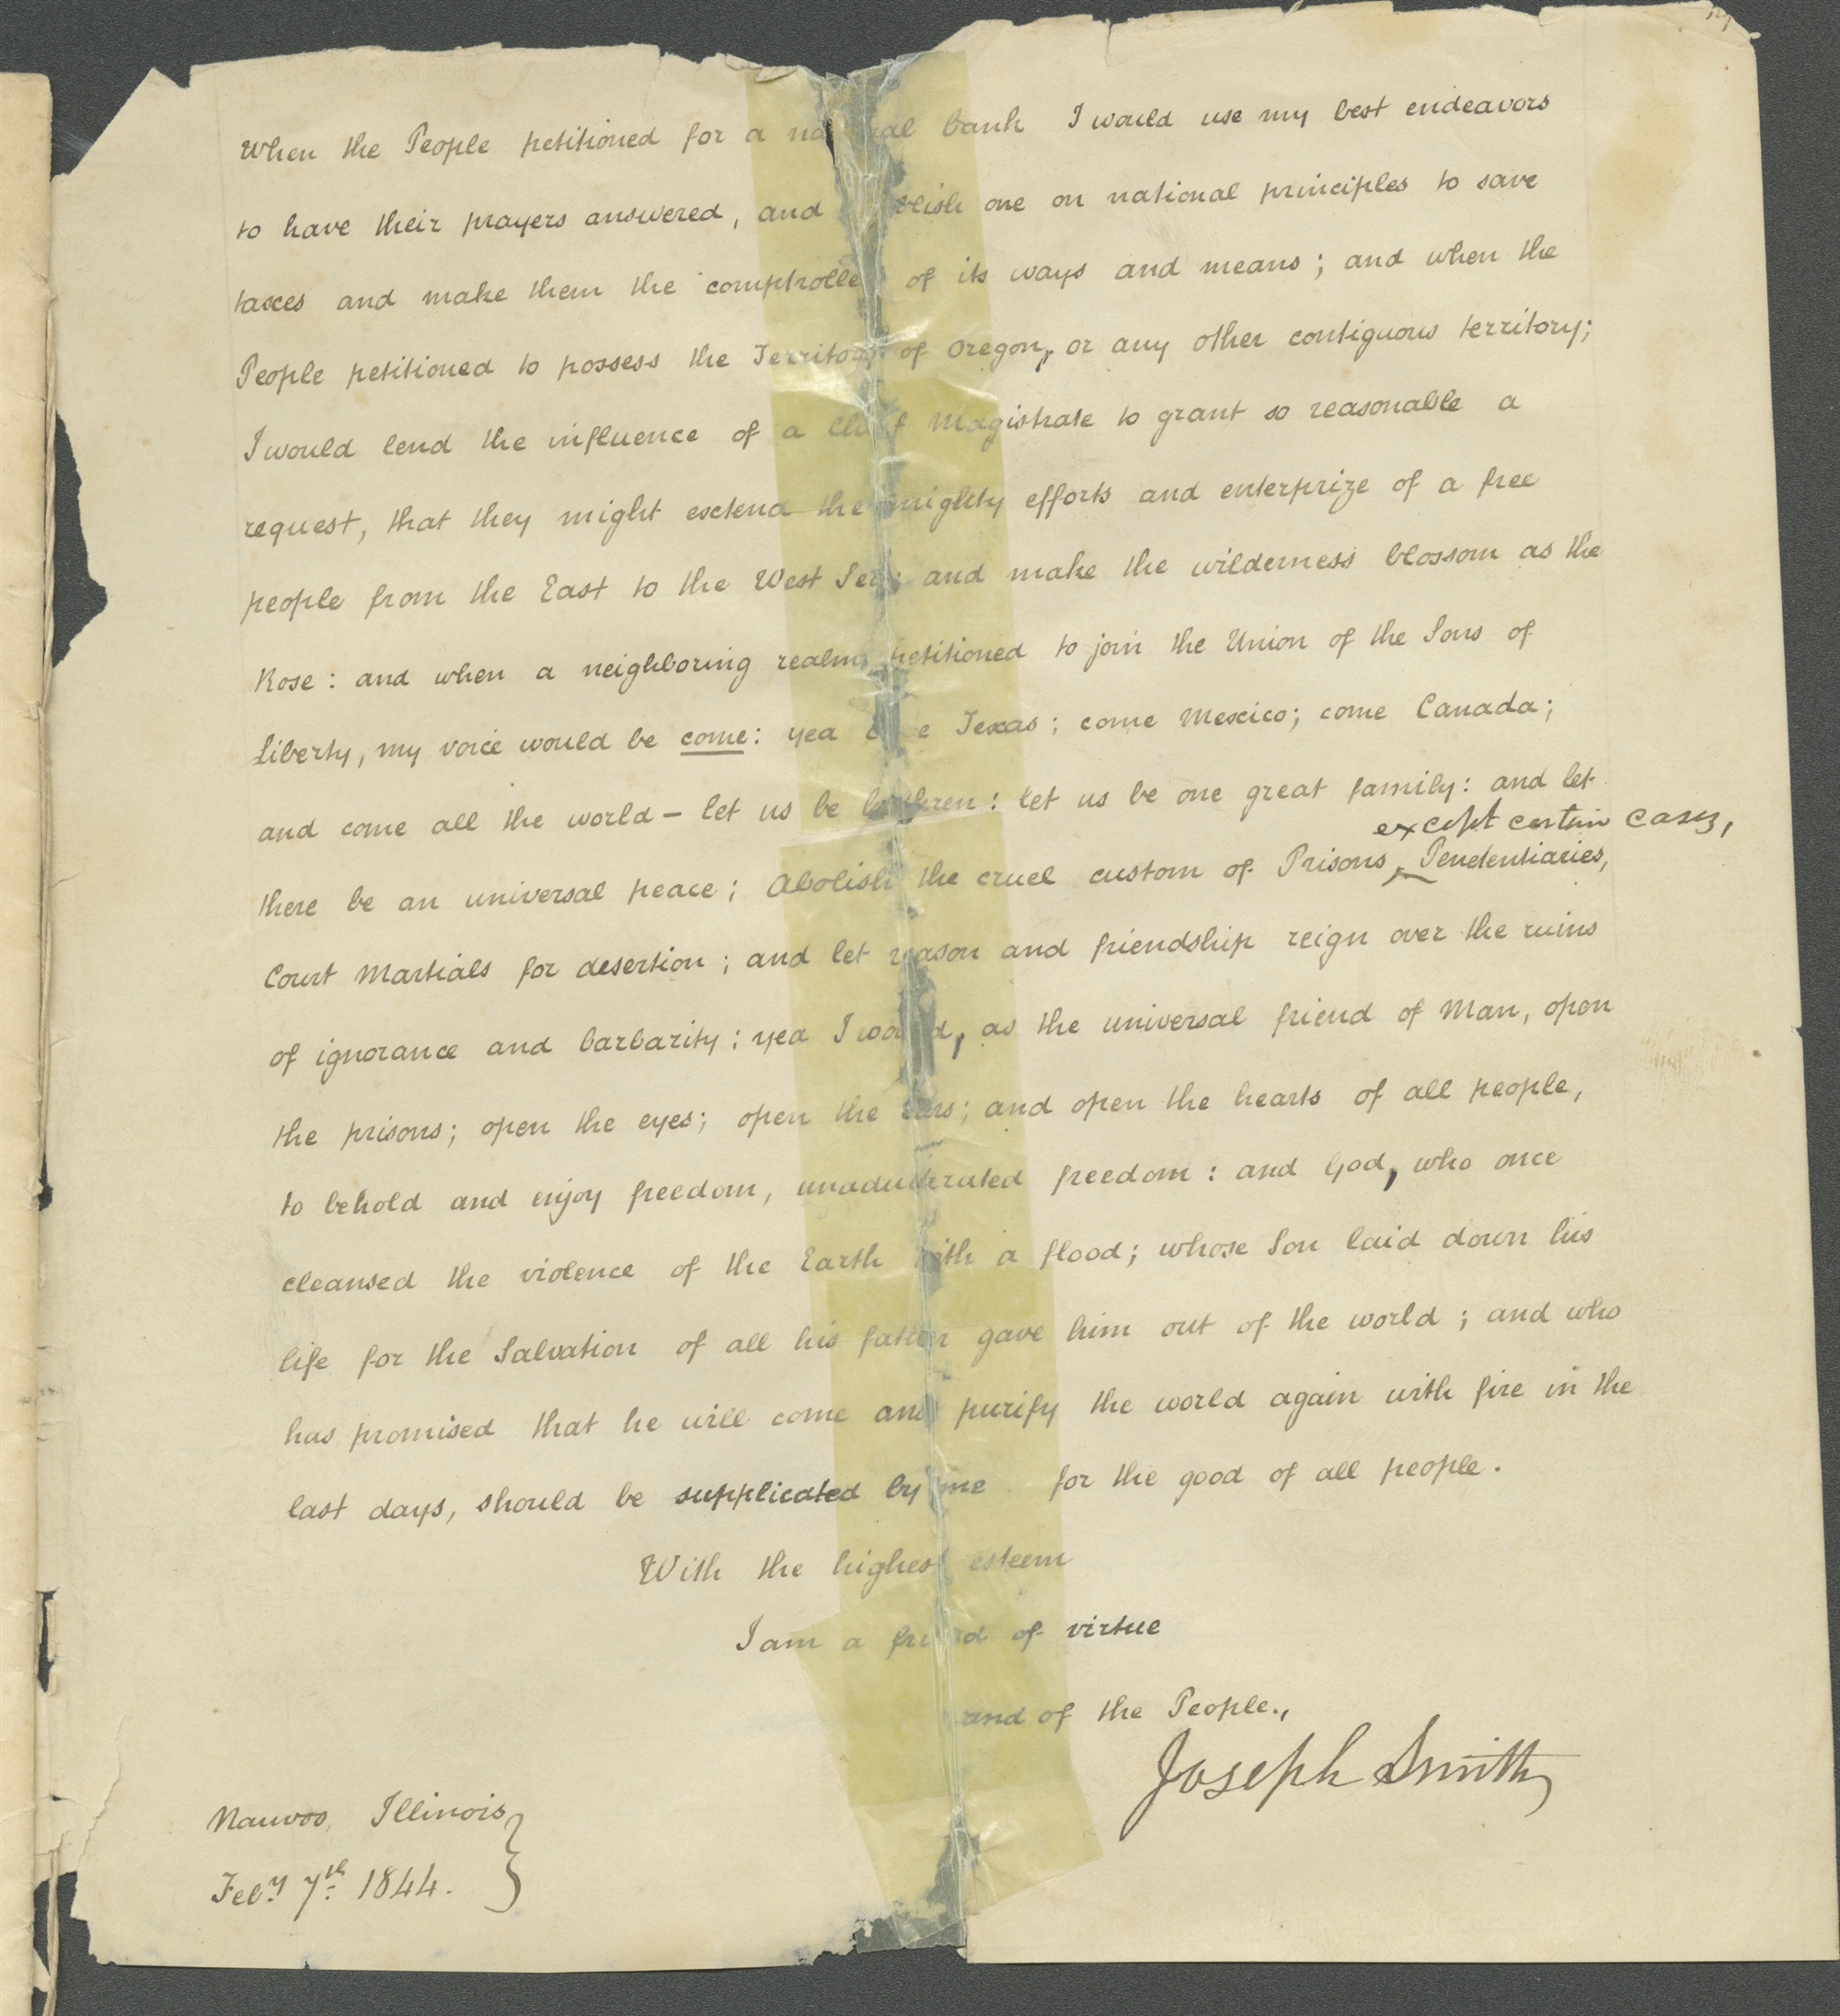 When the People petitioned for a national bank I would use my best endeavors
to have their prayers answered, and establish one on national principles to save
taxes and make them the comptrollers of its ways and means; and when the
People petitioned to possess the Territory of Oregon, or any other contiguous territory;
I would lend the influence of a Chief Magistrate to grant so reasonable a
request, that they might extend the mighty efforts and enterprize of a free
people from the East to the West Sea; and make the wilderness blossom as the
Rose: and when a neighboring realm petitioned to join the Union of the Sons of
Liberty, my voice would be come: yea come Texas; come Mexico; come Canada;
and come all the world – let us be brethren: let us be one great family: and let
except certain cases,
there be an universal peace; Abolish the cruel custom of Prisons, Penetentiaries,
Court Martials for desertion; and let reason and friendship reign over the ruins
of ignorance and barbarity; yea I would, as the universal friend of Man, open
the prisons; open the eyes; open the ears; and open the hearts of all people,
to behold and enjoy freedom, unadulterated freedom: and God, who once
cleansed the violence of the Earth with a flood; whose Son laid down his
life for the Salvation of all his father gave him out of the world; and who
has promised that he will come and purify the world again with fire in the
last days, should be supplicated by me for the good of all people.
With the highest esteem
I am a friend of virtue
and of the People.,
Joseph Smith
Nauvoo, Illinois
Feby 7th 1844.